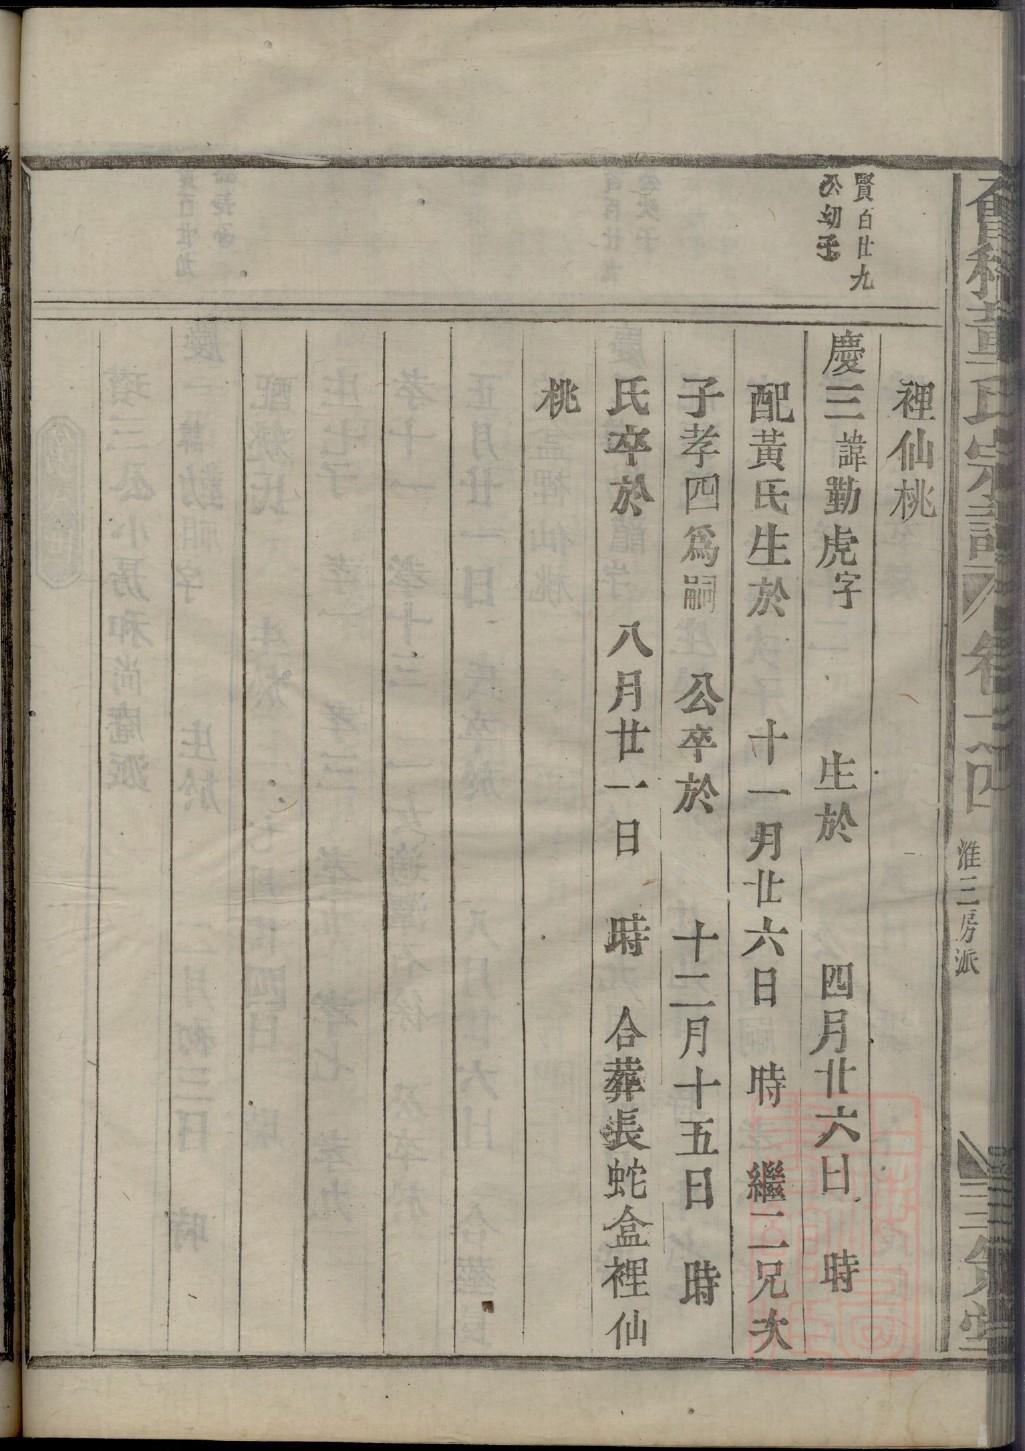 賢百廿九
公幼子
裡仙桃
慶三諱勤虎字　生於　四月廿六日　時
配黃氏生於　十一月廿六日　時　繼二兄次
子孝四爲嗣　公卒於　十二月十五日　時
氏卒於　八月廿一日　時　合葬長蛇盒裡仙
桃
氏宗譜
淮三房派